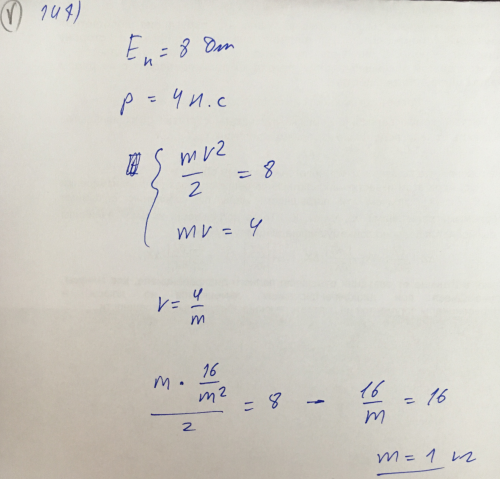 147)
Eк = 8 Дж
p = 4 н.с
{ mv²/2 = 8
mv = 4
v = 4/m
(m · 16/m²)/2 = 8 – 16/m = 16
m = 1 кг